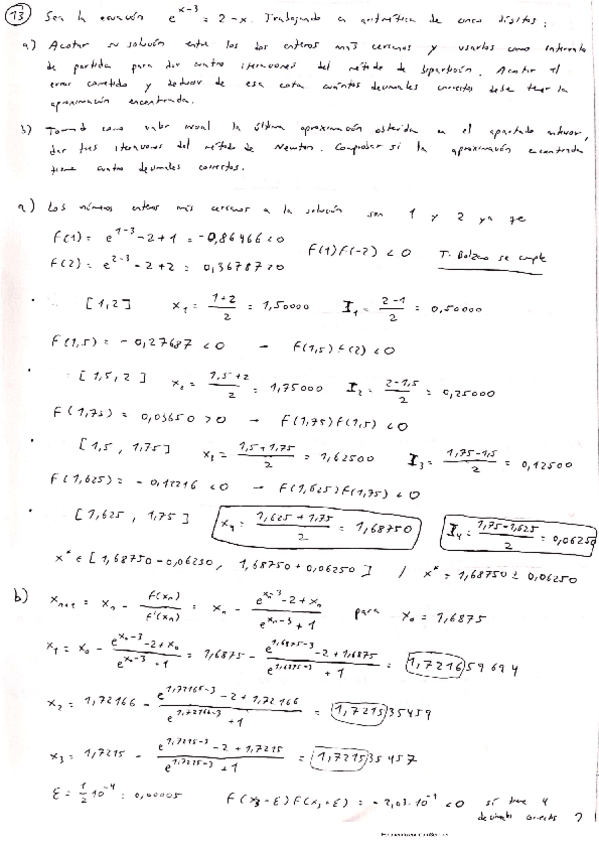 13 Sea la ecuación e^{x-3} = 2-x. Trabajando en aritmética de cinco dígitos:
a) Acotar su solución entre los dos enteros más cercanos y usarlos como intervalo
de partida para dar cuatro iteraciones del método de bipartición. Acotar el
error cometido y deducir de esa cota cuántos decimales correctos debe tener la
aproximación encontrada.
b) Tomando como valor inicial la última aproximación obtenida en el apartado anterior,
dar tres iteraciones del método de Newton. Comprobar si la aproximación encontrada
tiene cuatro decimales correctos.
a) Los números enteros más cercanos a la solución son 1 y 2 ya que
f(1) = e^{1-3} - 2 + 1 = -0,86466 < 0
f(2) = e^{2-3} - 2 + 2 = 0,36787 > 0
f(1)f(-2) < 0 T. Bolzano se cumple
· [1,2] x₁ = (1+2)/2 = 1,50000 I₁ = (2-1)/2 = 0,50000
f(1,5) = -0,27687 < 0 → f(1,5) f(2) < 0
· [1,5, 2] x₂ = (1,5+2)/2 = 1,75000 I₂ = (2-1,5)/2 = 0,25000
f(1,75) = 0,03650 > 0 → f(1,75) f(1,5) < 0
· [1,5, 1,75] x₃ = (1,5+1,75)/2 = 1,62500 I₃ = (1,75-1,5)/2 = 0,12500
f(1,625) = -0,12216 < 0 → f(1,625) f(1,75) < 0
· [1,625, 1,75] x₄ = (1,625+1,75)/2 = 1,68750 I₄ = (1,75-1,625)/2 = 0,06250
x* ∈ [1,68750 - 0,06250, 1,68750 + 0,06250] / x* = 1,68750 ± 0,06250
b) x_{n+1} = x_n - f(x_n)/f'(x_n) = x_n - (e^{x_n-3} - 2 + x_n)/(e^{x_n-3} + 1) para x₀ = 1,6875
x₁ = x₀ - (e^{x₀-3} - 2 + x₀)/(e^{x₀-3} + 1) = 1,6875 - (e^{1,6875-3} - 2 + 1,6875)/(e^{1,6875-3} + 1) = 1,721659694
x₂ = 1,72166 - (e^{1,72166-3} - 2 + 1,72166)/(e^{1,72166-3} + 1) = 1,721535459
x₃ = 1,7215 - (e^{1,7215-3} - 2 + 1,7215)/(e^{1,7215-3} + 1) = 1,721535457
ε = 1/2 10^{-4} = 0,00005 f(x₃-ε) f(x₃+ε) = < 0 sí tiene 4
decimales correctos